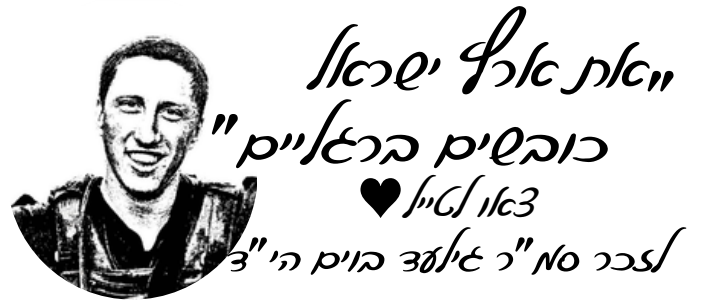 "את ארץ ישראל
כובשים ברגליים"
צאו לטייל ♥
לזכר סמ"ר גילעד בוים הי"ד